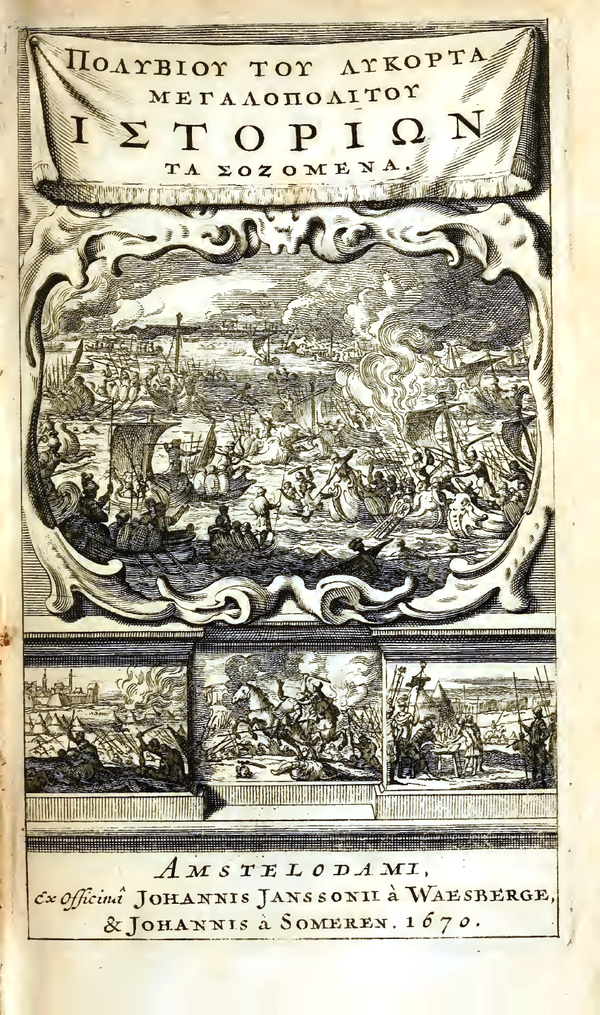 ΠΟΛΥΒΙΟΥ ΤΟΥ ΛΥΚΟΡΤΑ
ΜΕΓΑΛΟΠΟΛΙΤΟΥ
ΙΣΤΟΡΙΩΝ
ΤΑ ΣΟΖΟΜΕΝΑ.
AMSTELODAMI,
Ex Officinâ JOHANNIS JANSSONII à WAESBERGE,
& JOHANNIS à SOMEREN. 1670.